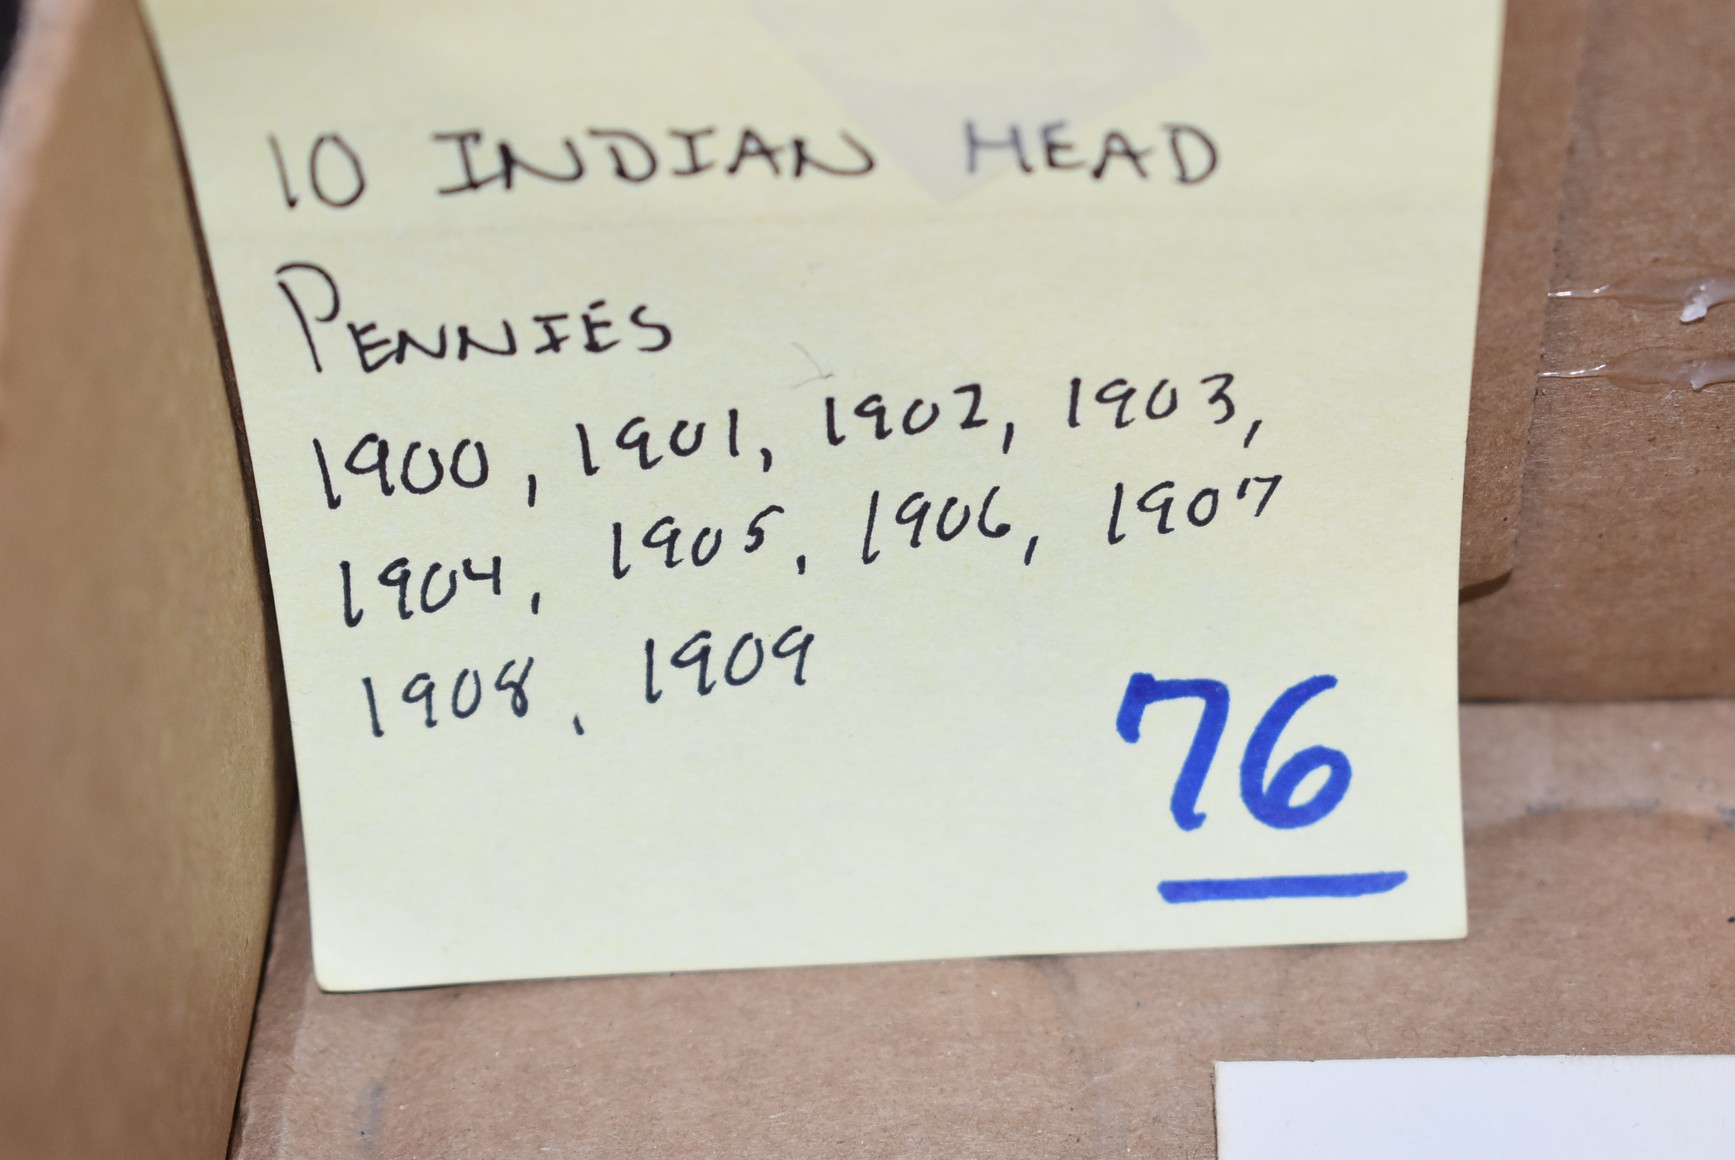 10 INDIAN HEAD
PENNIES
1900, 1901, 1902, 1903,
1904, 1905, 1906, 1907
1908, 1909
76